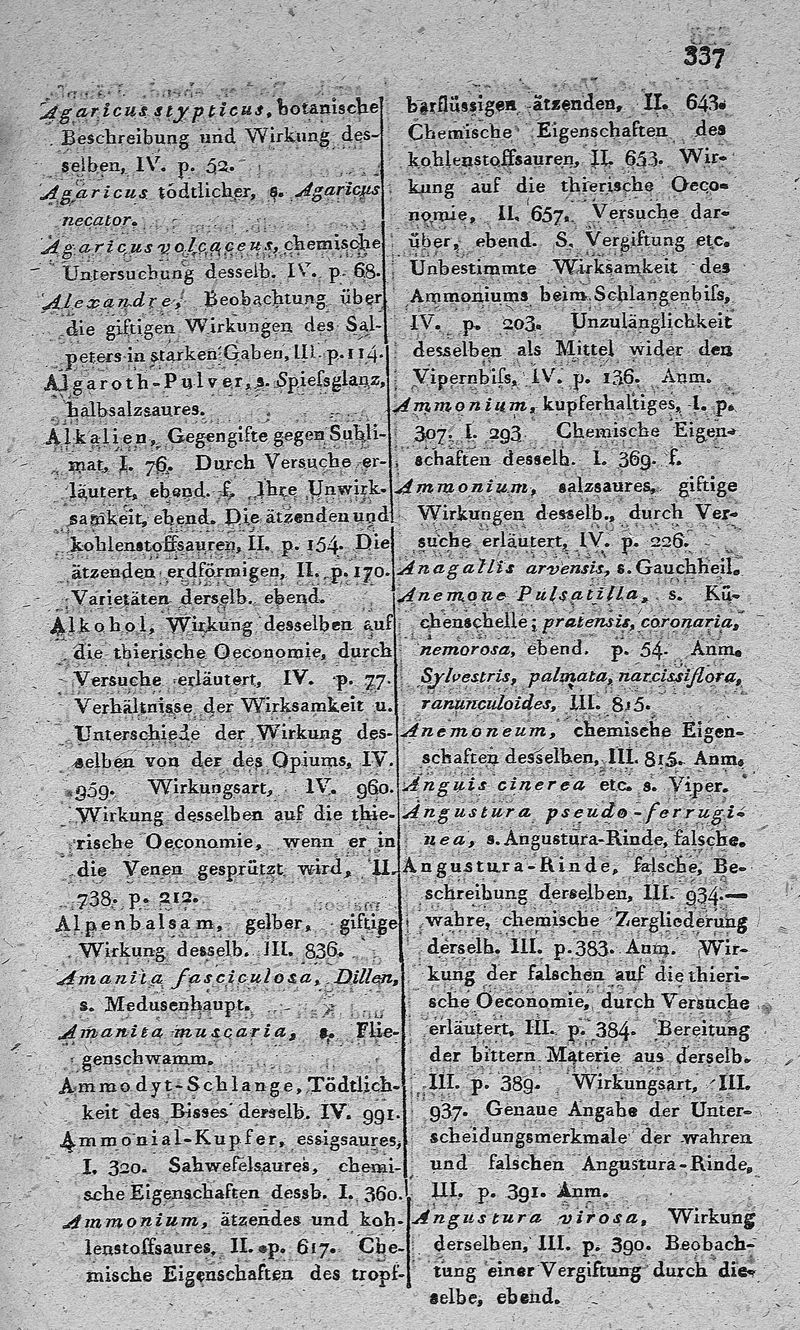 337
Agaricus stypticus, botanische
Beschreibung und Wirkung des-
selben, IV. p. 52.
Agaricus tödtlicher, s. Agaricus
necator.
Agaricus volcaceus, chemische
Untersuchung desselb. IV. p. 68.
Alexandre, Beobachtung über
die giftigen Wirkungen des Sal-
peters in starken Gaben, III. p. 114.
Algaroth-Pulver, s. Spiefsglanz,
halbsalzsaures.
Alkalien, Gegengifte gegen Subli-
mat, I. 76. Durch Versuche er-
läutert, ebend. f. Ihre Unwirk-
samkeit, ebend. Die ätzenden und
kohlenstoffsauren, II. p. 154. Die
ätzenden erdförmigen, II. p. 170.
Varietäten derselb. ebend.
Alkohol, Wirkung desselben auf
die thierische Oeconomie, durch
Versuche erläutert, IV. p. 77.
Verhältnisse der Wirksamkeit u.
Unterschiede der Wirkung des-
selben von der des Opiums, IV.
959. Wirkungsart, IV. 960.
Wirkung desselben auf die thie-
rische Oeconomie, wenn er in
die Venen gesprützt wird, II.
738. p. 212.
Alpenbalsam, gelber, giftige
Wirkung desselb. III. 836.
Amanita fasciculosa, Dillen,
s. Medusenhaupt.
Amanita muscaria, s. Flie-
genschwamm.
Ammodyt-Schlange, Tödtlich-
keit des Bisses derselb. IV. 991.
Ammonial-Kupfer, essigsaures,
I. 320. Sahwefelsaures, chemi-
sche Eigenschaften dessb. I. 360.
Ammonium, ätzendes und koh-
lenstoffsaures, II. p. 617. Che-
mische Eigenschaften des tropf-
barflüssigen ätzenden, II. 643.
Chemische Eigenschaften des
kohlenstoffsauren, II. 653. Wir-
kung auf die thierische Oeco-
nomie, II. 657. Versuche dar-
über, ebend. S. Vergiftung etc.
Unbestimmte Wirksamkeit des
Ammoniums beim Schlangenbifs,
IV. p. 203. Unzulänglichkeit
desselben als Mittel wider den
Vipernbifs, IV. p. 136. Anm.
Ammonium, kupferhaltiges, I. p.
307. I. 293 Chemische Eigen-
schaften desselb. I. 369. f.
Ammonium, salzsaures, giftige
Wirkungen desselb., durch Ver-
suche erläutert, IV. p. 226.
Anagallis arvensis, s. Gauchheil.
Anemone Pulsatilla, s. Kü-
chenschelle; pratensis, coronaria,
nemorosa, ebend. p. 54. Anm.
Sylvestris, palmata, narcissiflora,
ranunculoides, III. 815.
Anemoneum, chemische Eigen-
schaften desselben, III. 815. Anm.
Anguis cinerea etc. s. Viper.
Angustura pseudo-ferrugi-
nea, s. Angustura-Rinde, falsche.
Angustura-Rinde, falsche, Be-
schreibung derselben, III. 934.—
wahre, chemische Zergliederung
derselb. III. p. 383. Anm. Wir-
kung der falschen auf die thieri-
sche Oeconomie, durch Versuche
erläutert, III. p. 384. Bereitung
der bittern Materie aus derselb.
III. p. 389. Wirkungsart, III.
937. Genaue Angabe der Unter-
scheidungsmerkmale der wahren
und falschen Angustura-Rinde,
III. p. 391. Anm.
Angustura virosa, Wirkung
derselben, III. p. 390. Beobach-
tung einer Vergiftung durch die-
selbe, ebend.